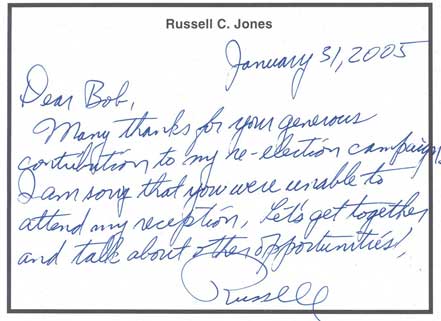 Russell C. Jones
January 31, 2005
Dear Bob,
Many thanks for your generous
contribution to my re-election campaign.
I am sorry that you were unable to
attend my reception. Let's get together
and talk about other opportunities!
Russell